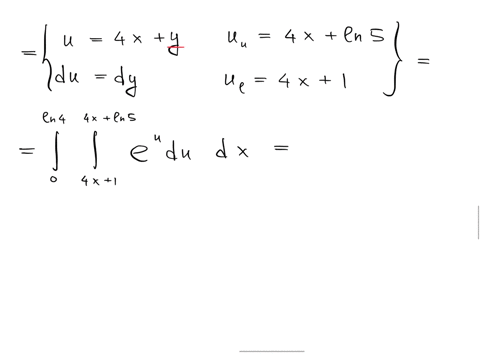 = { u = 4x + y     u_u = 4x + ln 5 } =
du = dy     u_l = 4x + 1
= ∫_0^{ln4} ∫_{4x+1}^{4x+ln5} e^u du dx =